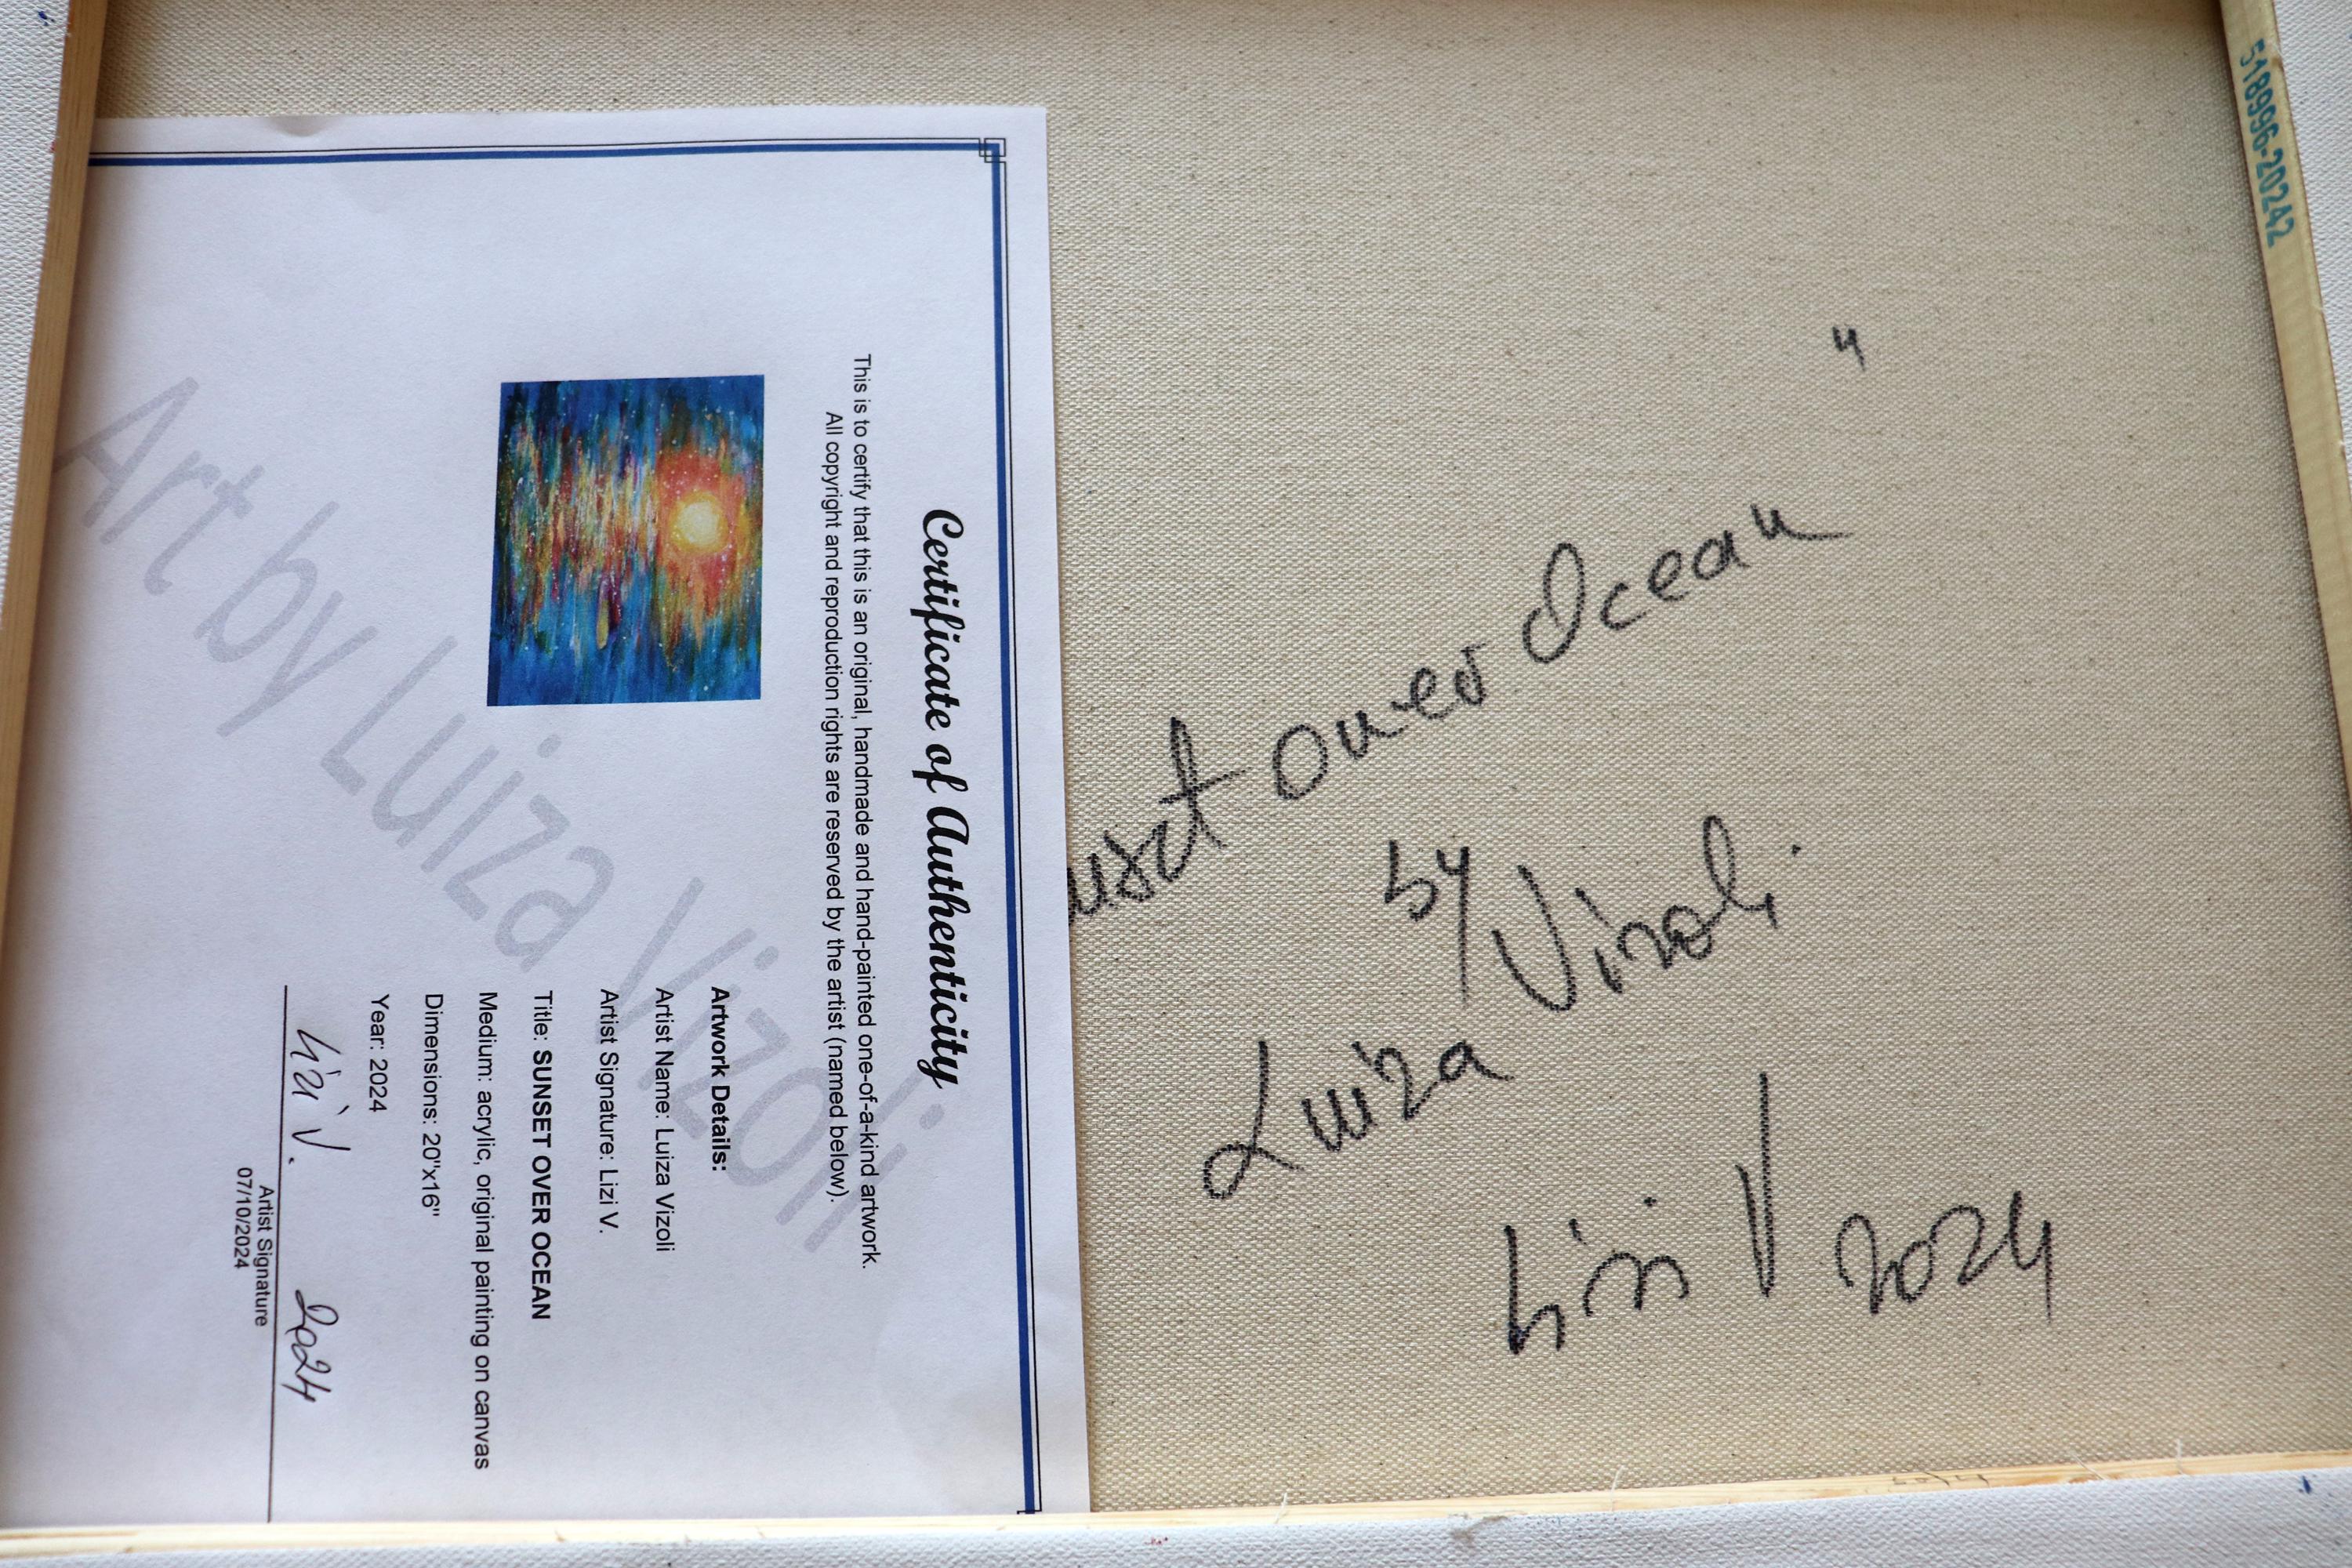 Certificate of Authenticity
This is to certify that this is an original, handmade and hand-painted one-of-a-kind artwork.
All copyright and reproduction rights are reserved by the artist (named below).
Artwork Details:
Artist Name: Luiza Vizoli
Artist Signature: Lizi V.
Title: SUNSET OVER OCEAN
Medium: acrylic, original painting on canvas
Dimensions: 20"x16"
Year: 2024
Lizi V. 2024
Artist Signature
07/10/2024
Art by Luiza Vizoli
unset over Ocean"
by
Luiza Vizoli
Lizi V 2024
518996-20242